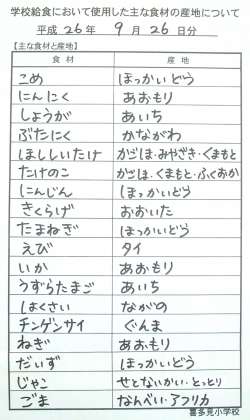 学校給食において使用した主な食材の産地について
平成 26年 9月 26日分
【主な食材と産地】
食材 産地
こめ ほっかいどう
にんにく あおもり
しょうが あいち
ぶたにく かながわ
ほししいたけ かごしま・みやざき・くまもと
たけのこ かごしま・くまもと・ふくおか
にんじん ほっかいどう
きくらげ おおいた
たまねぎ ほっかいどう
えび タイ
いか あおもり
うずらたまご あいち
はくさい ながの
チンゲンサイ ぐんま
ねぎ あおもり
だいず ほっかいどう
じゃこ せとないかい・とっとり
ごま なんべい・アフリカ
喜多見小学校